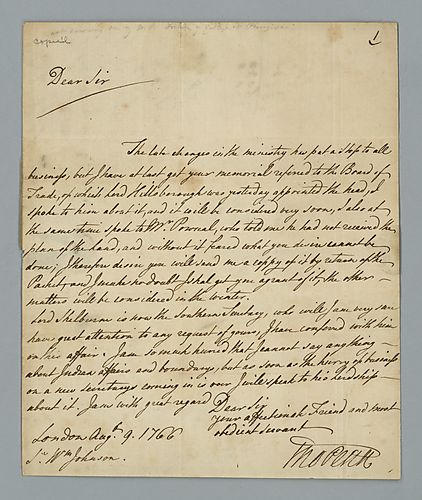 copied
1
Dear Sir
The late changes in the ministry has put a stop to all
business, but I have at last got your memorial referred to the Board of
Trade, of which Lord Hillsborough was yesterday appointed the head, I
spoke to him about it, and it will be considered very soon, I also at
the same time spoke to Mr. Pownal, who told me he had not received the
plan of the Land, and without it feared what you desire cannot be
done; I therefore desire you will send me a coppy of it by return of the
Packet, and I make no doubt I shal get you a grant of it, the other
matters will be considered in the winter.
Lord Shelburne is now the Southern Secretary, who will I am very sure
have great attention to any request of yours, I have confered with him
on his affair. I am so much hurried that I cannot say any thing
about Indian affairs and boundarys, but as soon as the hurry of business
on a new secretarys coming in is over I will speak to his lordship
about it. I am with great regard
Dear Sir
your affectionate Friend and most
obedient servant
London Augt. 9. 1766
Sr. Wm Johnson.